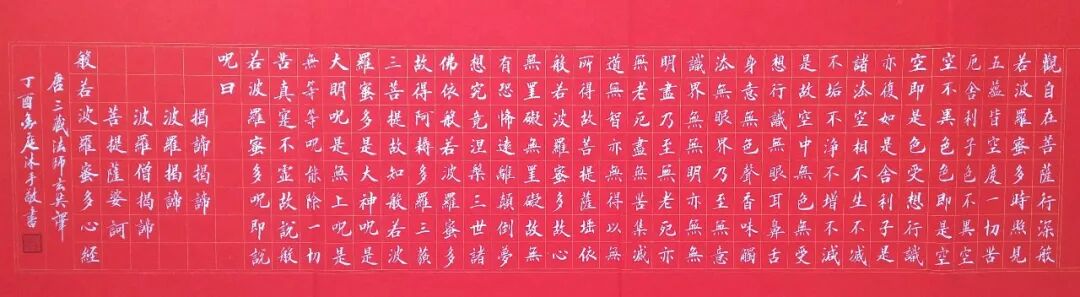 觀自在菩薩行深般
若波羅蜜多時照見
五蘊皆空度一切苦
厄舍利子色不異空
空不異色色即是空
空即是色受想行識
亦復如是舍利子是
諸法空相不生不滅
不垢不淨不增不減
是故空中無色無受
想行識無眼耳鼻舌
身意無色聲香味觸
法無眼界乃至無意
識界無無明亦無無
明盡乃至無老死亦
無老死盡無苦集滅
道無智亦無得以無
所得故菩提薩埵依
般若波羅蜜多故心
無罣礙無罣礙故無
有恐怖遠離顛倒夢
想究竟涅槃三世諸
佛依般若波羅蜜多
故得阿耨多羅三藐
三菩提故知般若波
羅蜜多是大神呪是
大明呪是無上呪是
無等等呪能除一切
苦真實不虛故說般
若波羅蜜多呪即說
呪曰
揭諦揭諦
波羅揭諦
波羅僧揭諦
菩提薩婆訶
般若波羅蜜多心經
唐三藏法師玄奘譯
丁酉庭沐手敬書